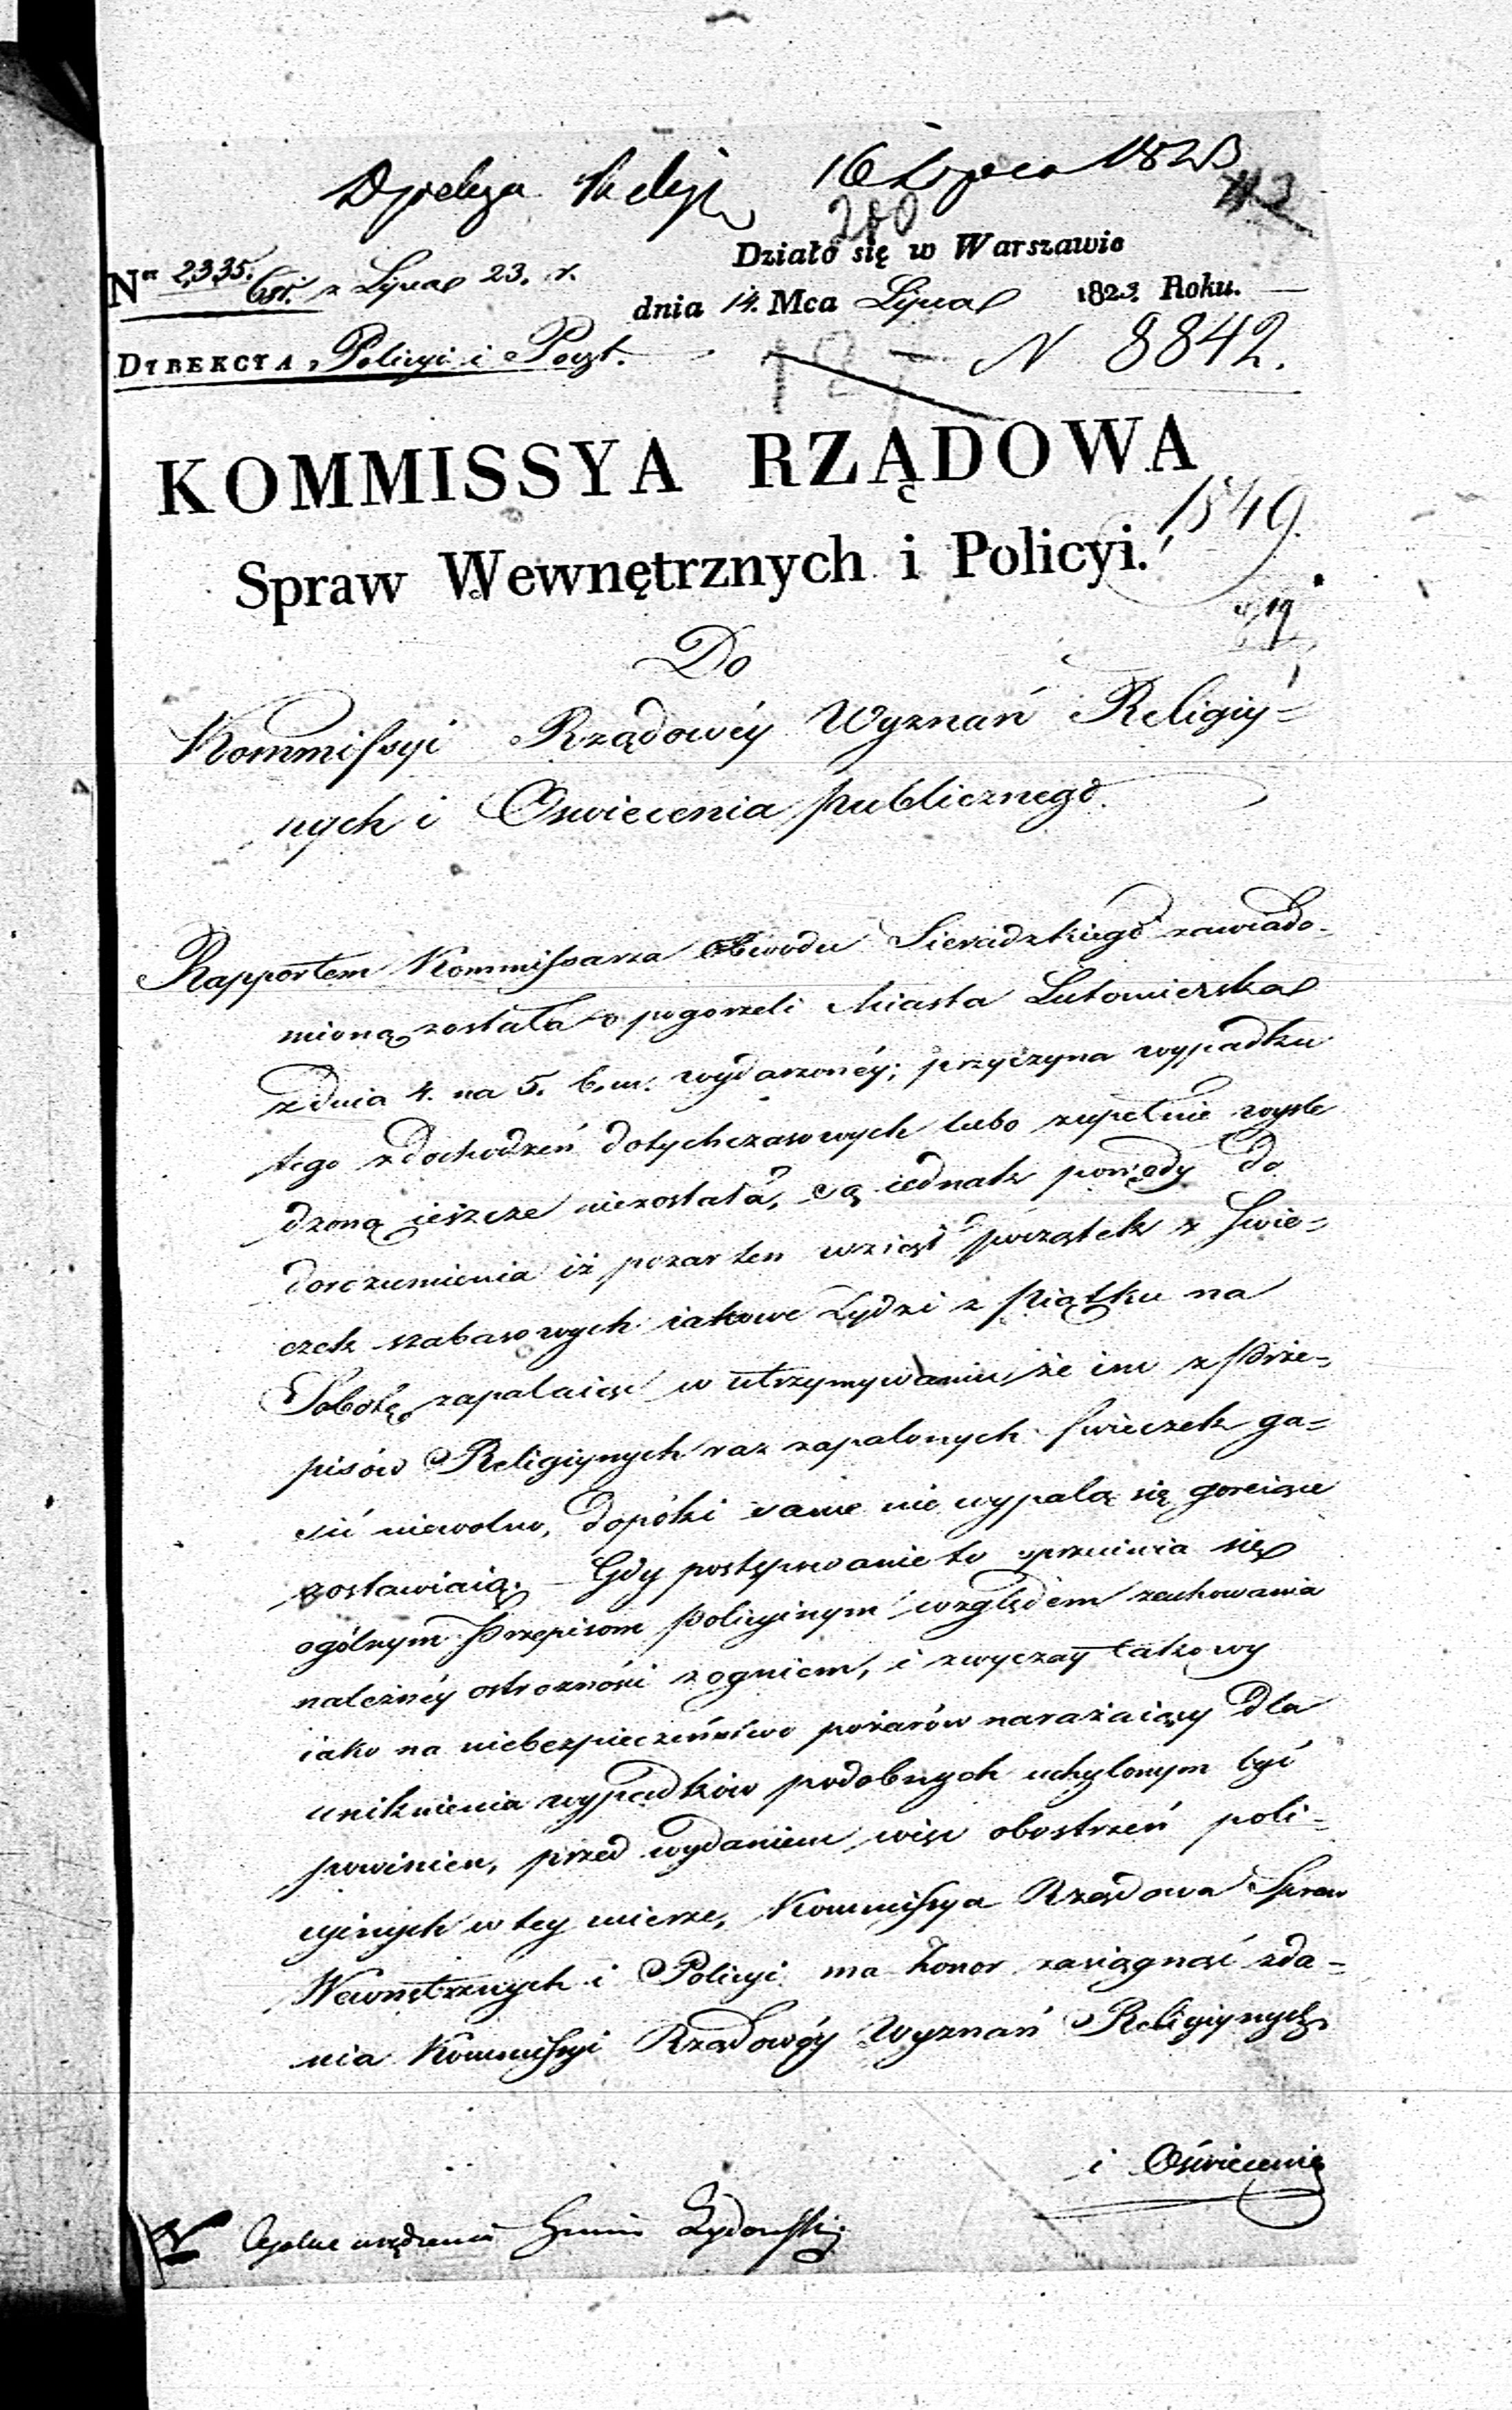 16 Lipca 1823
113
280
Działo się w Warszawie
Nro 2335. z Lipca 23. r.
dnia 14. Mca Lipca 1823. Roku.
DYREKCYA, Policyi i Poczt.
N 8842.
KOMMISSYA RZĄDOWA
1549.
Spraw Wewnętrznych i Policyi.
19
Do
Kommissyi Rządowéy Wyznań Religiy-
nych i Oswiecenia publicznego.
Rapportem Kommissarza Obwodu Sieradzkiego zawiado-
mioną została o pogorzeli Miasta Lutomierska
z dnia 4. na 5. b. m. wydarzonéy; przyczyna wypadku
tego z dochodzeń dotychczasowych lubo zupełnie wyśle
dzoną ieszcze niezostała, są iednak powody do
dorozumienia iż pożar ten wziął początek z Swie-
czek szabasowych iakowe Żydzi z Piątku na
Sobotę zapalaiąc w utrzymywaniu że im z Prze-
pisów Religiynych raz zapalonych Swieczek ga-
sić niewolno, dopóki same nie wypalą się goreiące
zostawiaią. – Gdy postępowanie to sprzeciwia się
ogólnym Przepisom Policyinym względem zachowania
należnéy ostrożności z ogniem, i zwyczay takowy
iako na niebezpieczeństwo pożarów narażaiący dla
uniknienia wypadków podobnych uchylonym być
powinien, przed wydaniem więc obostrzeń poli-
cyinych w tey mierze, Kommissya Rządowa Spraw
Wewnętrznych i Policyi ma honor zasiągnąć zda-
nia Kommissyi Rządowéy Wyznań Religiynych
i Oświecenia
urządzenia Gmin Żydowski